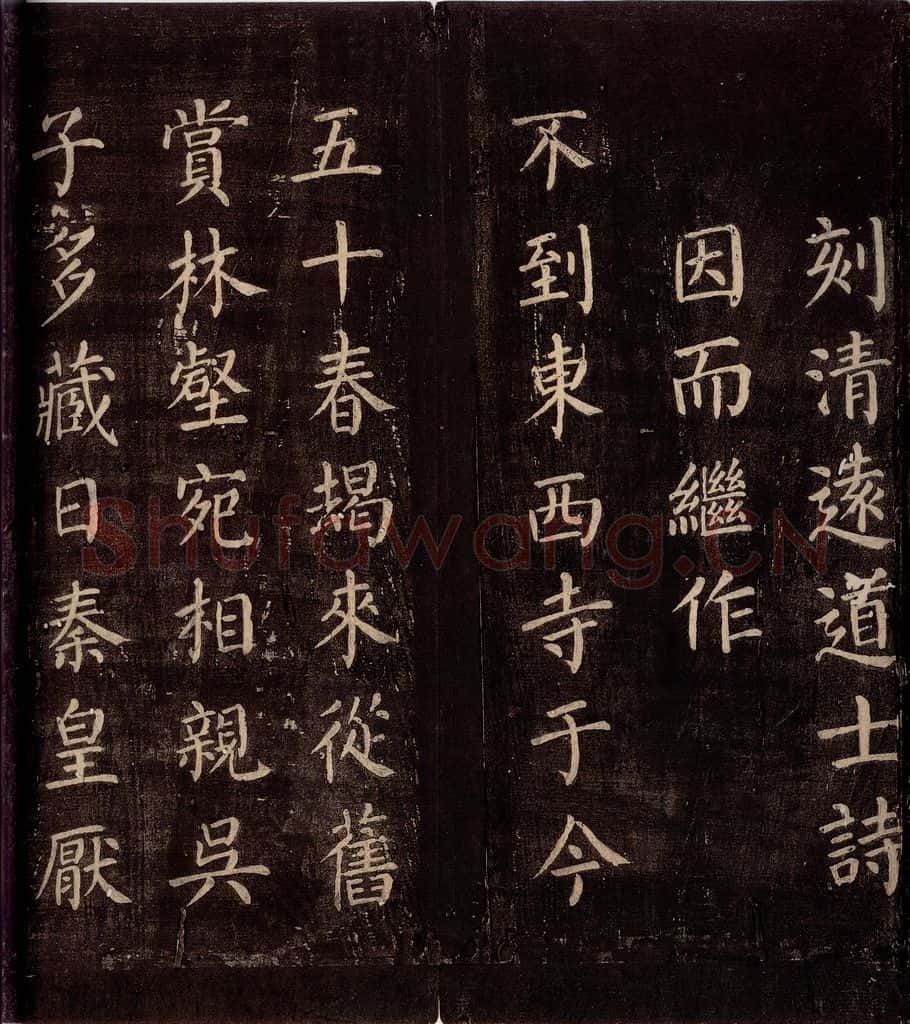 刻清遠道士詩
因而繼作
不到東西寺于今
五十春朅來從舊
賞林壑宛相親吳
子多藏日秦皇厭
Shufawang.CN